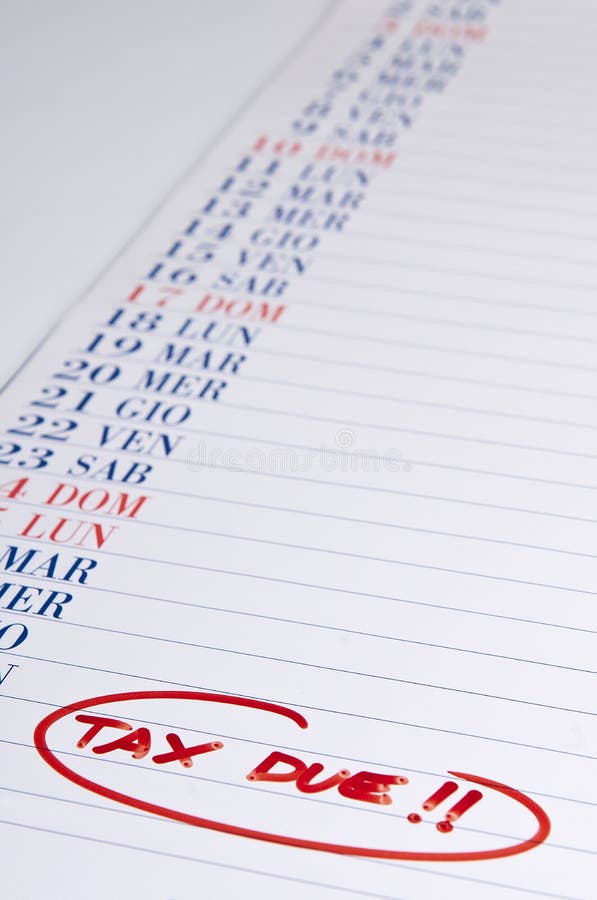 SAB
3 DOM
4 LUN
5 MAR
6 MER
7 GIO
8 VEN
9 SAB
10 DOM
11 LUN
12 MAR
13 MER
14 GIO
15 VEN
16 SAB
17 DOM
18 LUN
19 MAR
20 MER
21 GIO
22 VEN
23 SAB
4 DOM
LUN
MAR
MER
IO
N
TAX DUE!!
dreamstime.com